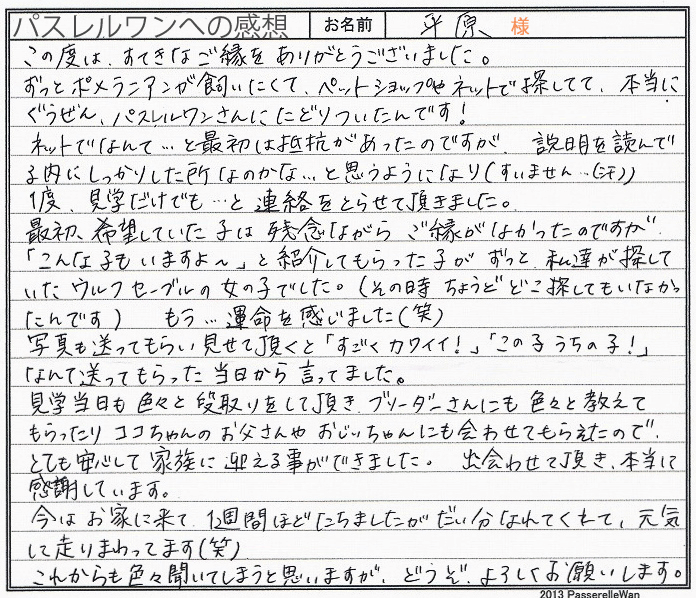 パスレルワンへの感想 お名前 平原 様
この度は、すてきなご縁をありがとうございました。
ずっとポメラニアンが飼いたくて、ペットショップやネットで探してて、本当に
ぐうぜん、パスレルワンさんにたどりついたんです!
ネットでなんて…と最初は抵抗があったのですが、説明を読んで
る内にしっかりした所なのかな…と思うようになり(すいません…(汗))
1度、見学だけでも…と連絡をとらせて頂きました。
最初、希望していた子は残念ながらご縁がなかったのですが
「こんな子もいますよ~」と紹介してもらった子がずっと、私達が探して
いたウルフセーブルの女の子でした。(その時ちょうどどこ探してもいなかっ
たんです) もう…運命を感じました(笑)
写真も送ってもらい見せて頂くと「すごくカワイイ!」「この子うちの子!」
なんて送ってもらった当日から言ってました。
見学当日も色々と段取りをして頂き、ブリーダーさんにも色々と教えて
もらったりココちゃんのお父さんやおじいちゃんにも会わせてもらえたので、
とても安心して家族に迎える事ができました。 出会わせて頂き、本当に
感謝しています。
今はお家に来て、1週間ほどたちましたがだい分なれてくれて、元気
して走りまわってます(笑)
これからも色々聞いてしまうと思いますが、どうぞ、よろしくお願いします。
2013 PasserelleWan